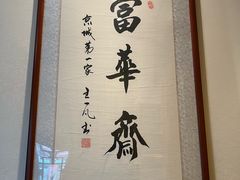 富華齋
京城第一家 王一凡书